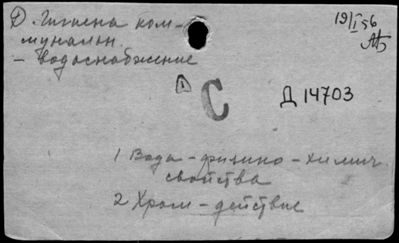 Д. Гигиена ком-
мунальн.
- водоснабжение
19/I 56
АБ
1
С
Д 14703
1 Вода - физико - химич.
свойства
2 Хром - действие